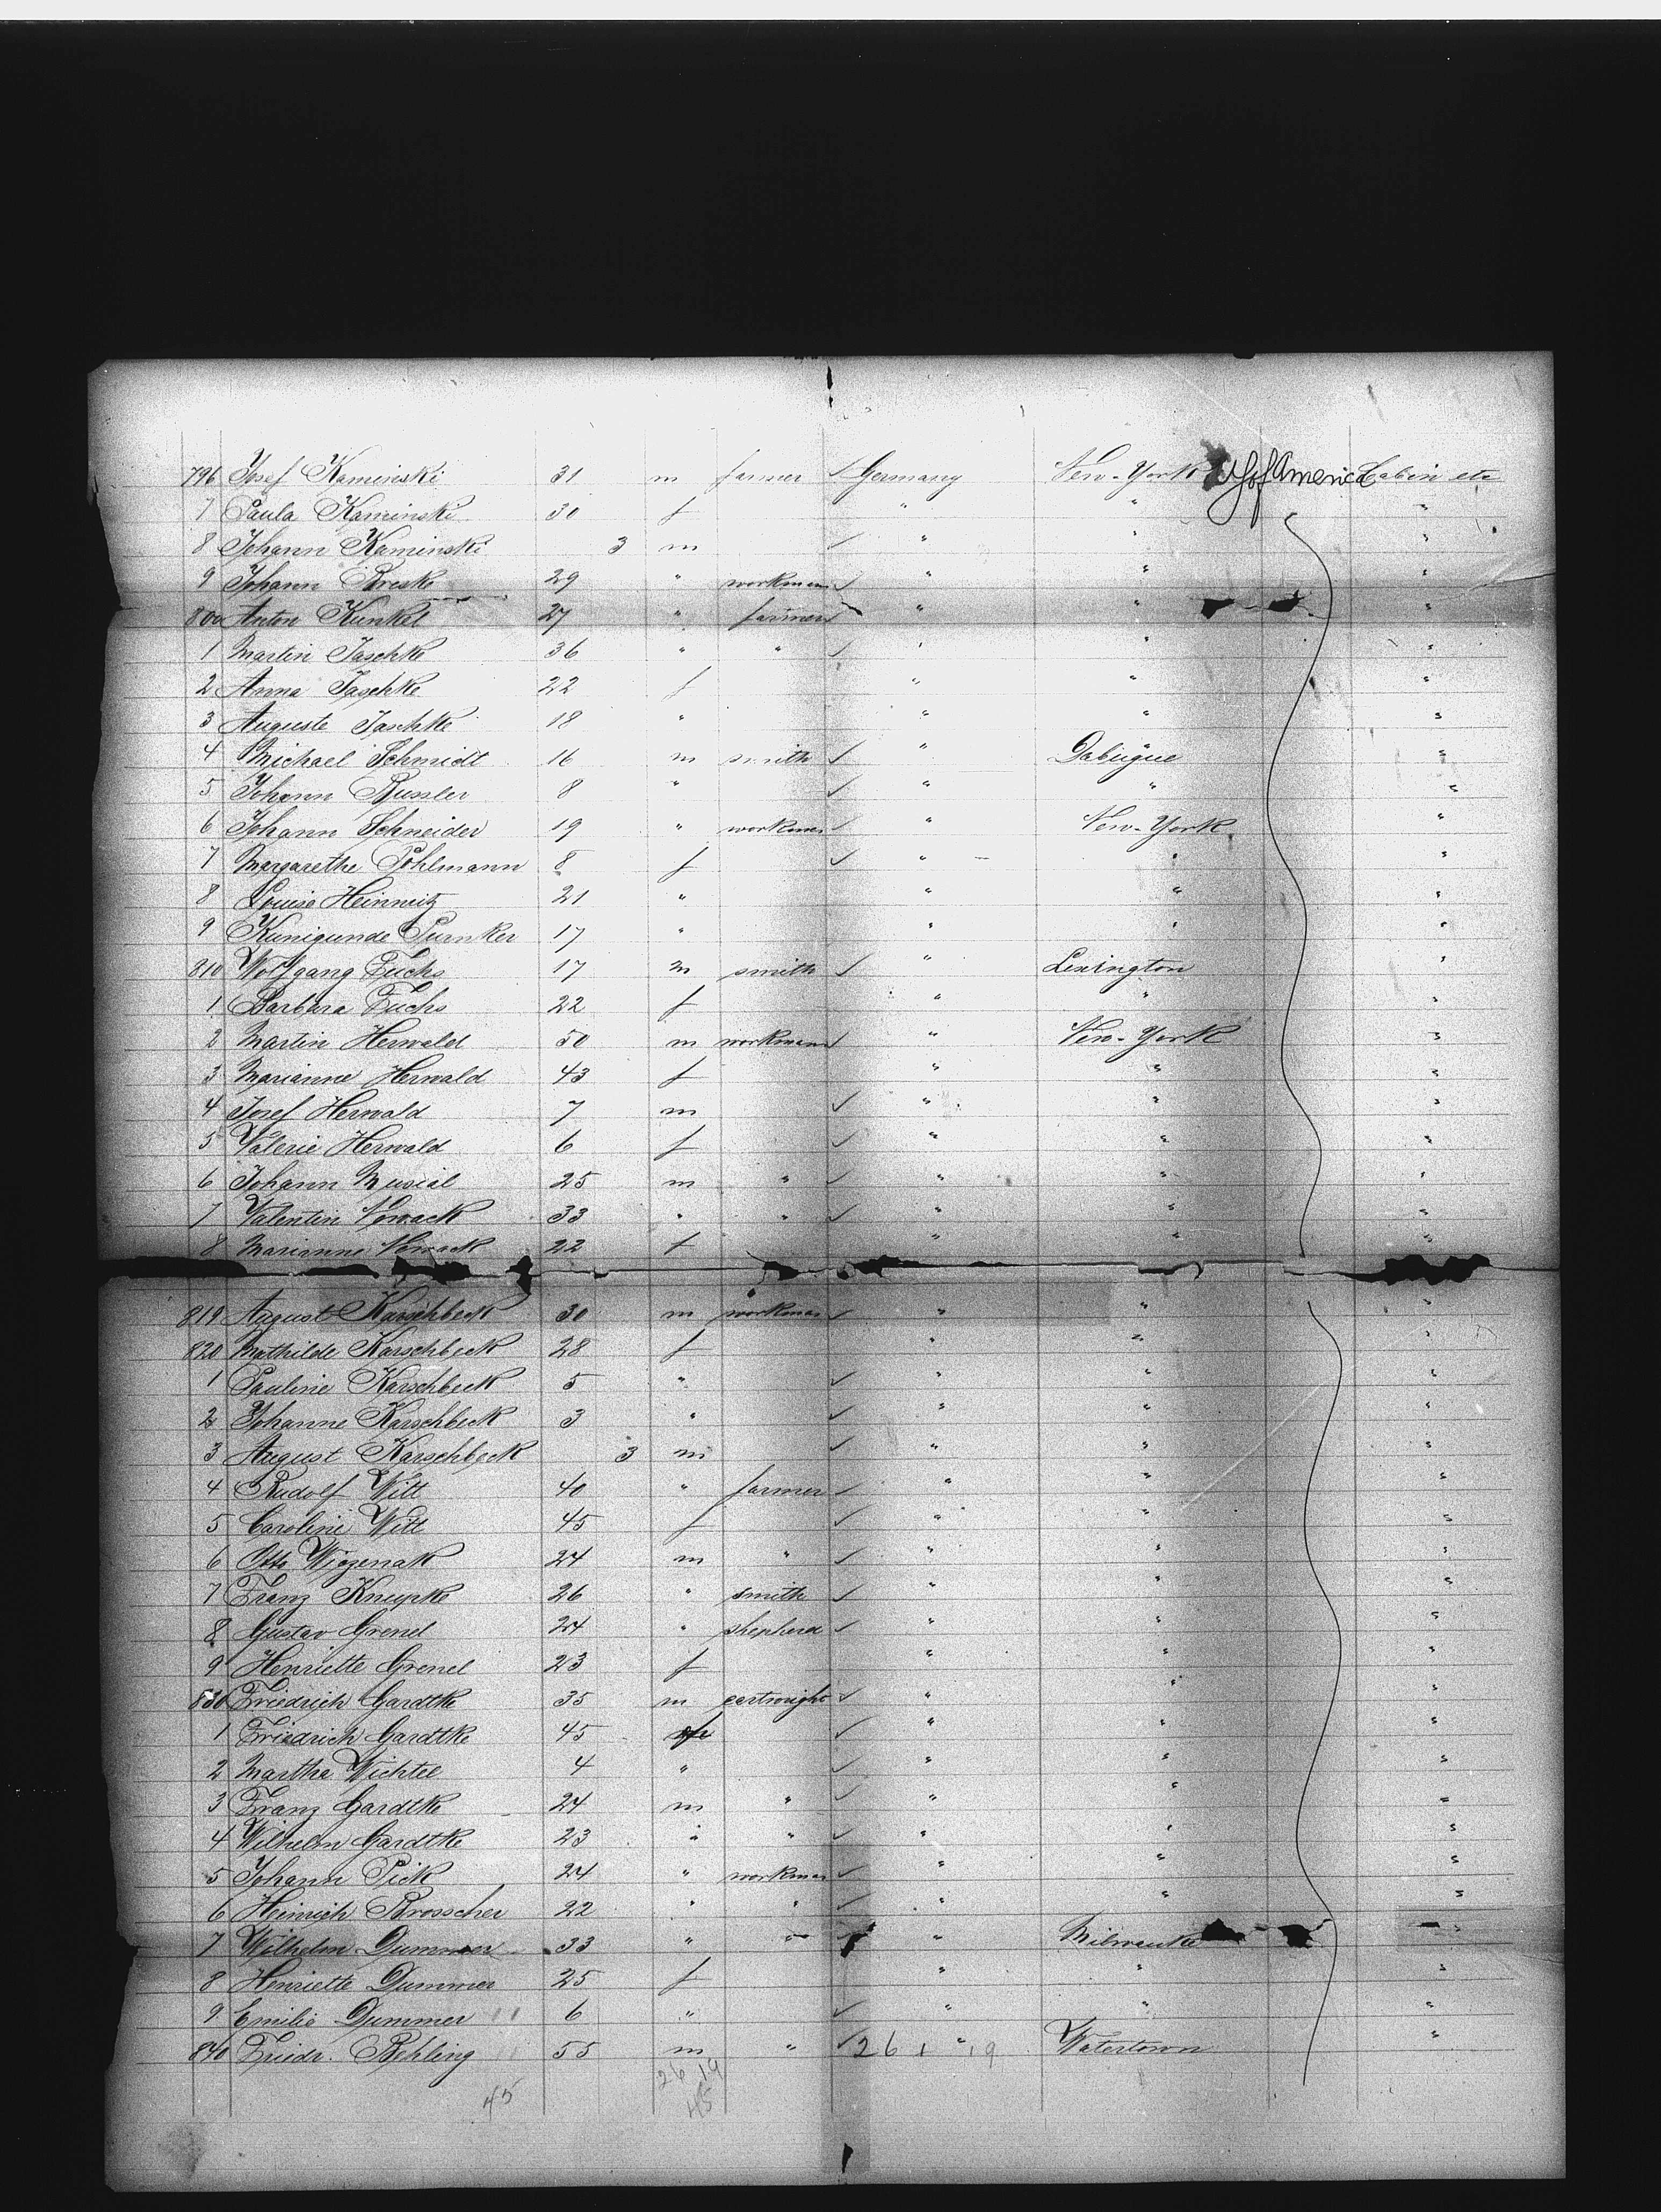 796 Josef Kaminski 31 m farmer ✓ Germany New-York U S of America Cabin etc
7 Paula Kaminski 30 f " " "
8 Johann Kaminski 3 m ✓ " " "
9 Johann Breske 29 " workman ✓ " " "
800 Anton Kunkel 27 " farmer ✓ " " "
1 Martin Jaschke 36 " " ✓ " " "
2 Anna Jaschke 22 f " " "
3 Auguste Jaschke 18 " " " "
4 Michael Schmidt 16 m smith ✓ " Dabuque "
5 Johann Bussler 8 " ✓ " " "
6 Johann Schneider 19 " workman ✓ " New-York "
7 Margarethe Pohlmann 8 f ✓ " " "
8 Louise Heinnitz 21 " " " "
9 Kunigunde Purnker 17 " " " "
810 Wolfgang Fuchs 17 m smith ✓ " Lexington "
1 Barbara Fuchs 22 f " " "
2 Martin Herwald 50 m workman ✓ " New-York "
3 Marianne Herwald 43 f " " "
4 Josef Herwald 7 m ✓ " " "
5 Valerie Herwald 6 f ✓ " " "
6 Johann Musial 25 m " ✓ " " "
7 Valentin Nowack 33 " " ✓ " " "
8 Marianne Nowack 22 f " " "
819 August Karschbeck 30 m workman ✓ " " "
820 Mathilde Karschbeck 28 f " " "
1 Pauline Karschbeck 5 " ✓ " " "
2 Johanne Karschbeck 3 " ✓ " " "
3 August Karschbeck 3 m ✓ " " "
4 Rudolf Witt 40 " farmer ✓ " " "
5 Caroline Witt 45 f ✓ " " "
6 Otto Wiezenak 24 m " ✓ " " "
7 Franz Knupke 26 " smith ✓ " " "
8 Gustav Grenel 24 " shepherd ✓ " " "
9 Henriette Grenel 23 f " " "
830 Friedrich Gardtke 35 m cartwright ✓ " " "
1 Friedrich Gardtke 45 f ✓ " " "
2 Martha Wichtel 4 " ✓ " " "
3 Franz Gardtke 24 m " ✓ " " "
4 Wilhelm Gardtke 23 " " ✓ " " "
5 Johann Pick 24 " workman ✓ " " "
6 Heinrich Brosscher 22 " " ✓ " " "
7 Wilhelm Dummer 33 " " ✓ " Milwaukee "
8 Henriette Dummer 25 f " " "
9 Emilie Dummer 11 6 " ✓ " " "
840 Friedr. Behling 11 55 m " ✓ 26 1 " 19 Watertown "
26 19
45 45